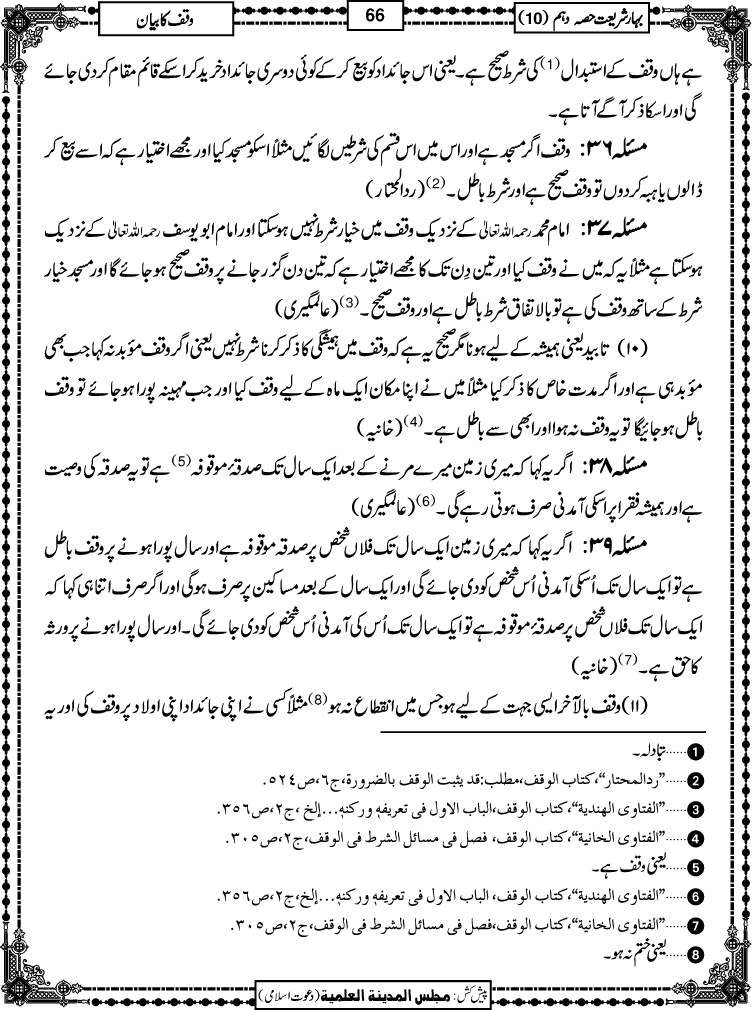 بہار شریعت حصہ دہم (10)
66
وقف کا بیان
ہے ہاں وقف کے استبدال (1) کی شرط صحیح ہے۔ یعنی اس جائداد کو بیع کر کے کوئی دوسری جائداد خرید کر اسکے قائم مقام کر دی جائے
گی اور اسکا ذکر آگے آتا ہے۔
مسئلہ ۳۶: وقف اگر مسجد ہے اور اس میں اس قسم کی شرطیں لگائیں مثلاً اسکو مسجد کیا اور مجھے اختیار ہے کہ اسے بیع کر
ڈالوں یا ہبہ کر دوں تو وقف صحیح ہے اور شرط باطل۔ (2) (ردالمحتار)
مسئلہ ۳۷: امام محمد رحمہ اللہ تعالیٰ کے نزدیک وقف میں خیار شرط نہیں ہوسکتا اور امام ابو یوسف رحمہ اللہ تعالیٰ کے نزدیک
ہوسکتا ہے مثلاً یہ کہ میں نے وقف کیا اور تین دِن تک کا مجھے اختیار ہے کہ تین دن گزر جانے پر وقف صحیح ہو جائے گا اور مسجد خیار
شرط کے ساتھ وقف کی ہے تو بالاتفاق شرط باطل ہے اور وقف صحیح۔ (3) (عالمگیری)
(۱۰) تابید یعنی ہمیشہ کے لیے ہونا مگر صحیح یہ ہے کہ وقف میں ہمیشگی کا ذکر کرنا شرط نہیں یعنی اگر وقف مؤبد نہ کہا جب بھی
مؤبد ہی ہے اور اگر مدت خاص کا ذکر کیا مثلاً میں نے اپنا مکان ایک ماہ کے لیے وقف کیا اور جب مہینہ پورا ہو جائے تو وقف
باطل ہو جائیگا تو یہ وقف نہ ہوا اور ابھی سے باطل ہے۔ (4) (خانیہ)
مسئلہ ۳۸: اگر یہ کہا کہ میری زمین میرے مرنے کے بعد ایک سال تک صدقۂ موقوفہ (5) ہے تو یہ صدقہ کی وصیت
ہے اور ہمیشہ فقرا پر اسکی آمدنی صرف ہوتی رہے گی۔ (6) (عالمگیری)
مسئلہ ۳۹: اگر یہ کہا کہ میری زمین ایک سال تک فلاں شخص پر صدقہ موقوفہ ہے اور سال پورا ہونے پر وقف باطل
ہے تو ایک سال تک اُسکی آمدنی اُس شخص کو دی جائے گی اور ایک سال کے بعد مساکین پر صرف ہوگی اور اگر صرف اتنا ہی کہا کہ
ایک سال تک فلاں شخص پر صدقۂ موقوفہ ہے تو ایک سال تک اُس کی آمدنی اُس شخص کو دی جائے گی۔ اور سال پورا ہونے پر ورثہ
کا حق ہے۔ (7) (خانیہ)
(۱۱) وقف بالآخر ایسی جہت کے لیے ہو جس میں انقطاع نہ ہو (8) مثلاً کسی نے اپنی جائداد اپنی اولاد پر وقف کی اور یہ
1 ......تبادلہ۔
2 ......"ردالمحتار"، کتاب الوقف، مطلب: قد یثبت الوقف بالضرورة، ج٦، ص٥٢٤.
3 ......"الفتاوی الهندیة"، کتاب الوقف، الباب الاول فی تعریفه ورکنه... إلخ، ج٢، ص٣٥٦.
4 ......"الفتاوی الخانیة"، کتاب الوقف، فصل فی مسائل الشرط فی الوقف، ج٢، ص٣٠٥.
5 ......یعنی وقف ہے۔
6 ......"الفتاوی الهندیة"، کتاب الوقف، الباب الاول فی تعریفه ورکنه... إلخ، ج٢، ص٣٥٦.
7 ......"الفتاوی الخانیة"، کتاب الوقف، فصل فی مسائل الشرط فی الوقف، ج٢، ص٣٠٥.
8 ......یعنی ختم نہ ہو۔
پیش کش: مجلس المدینة العلمیة (دعوت اسلامی)